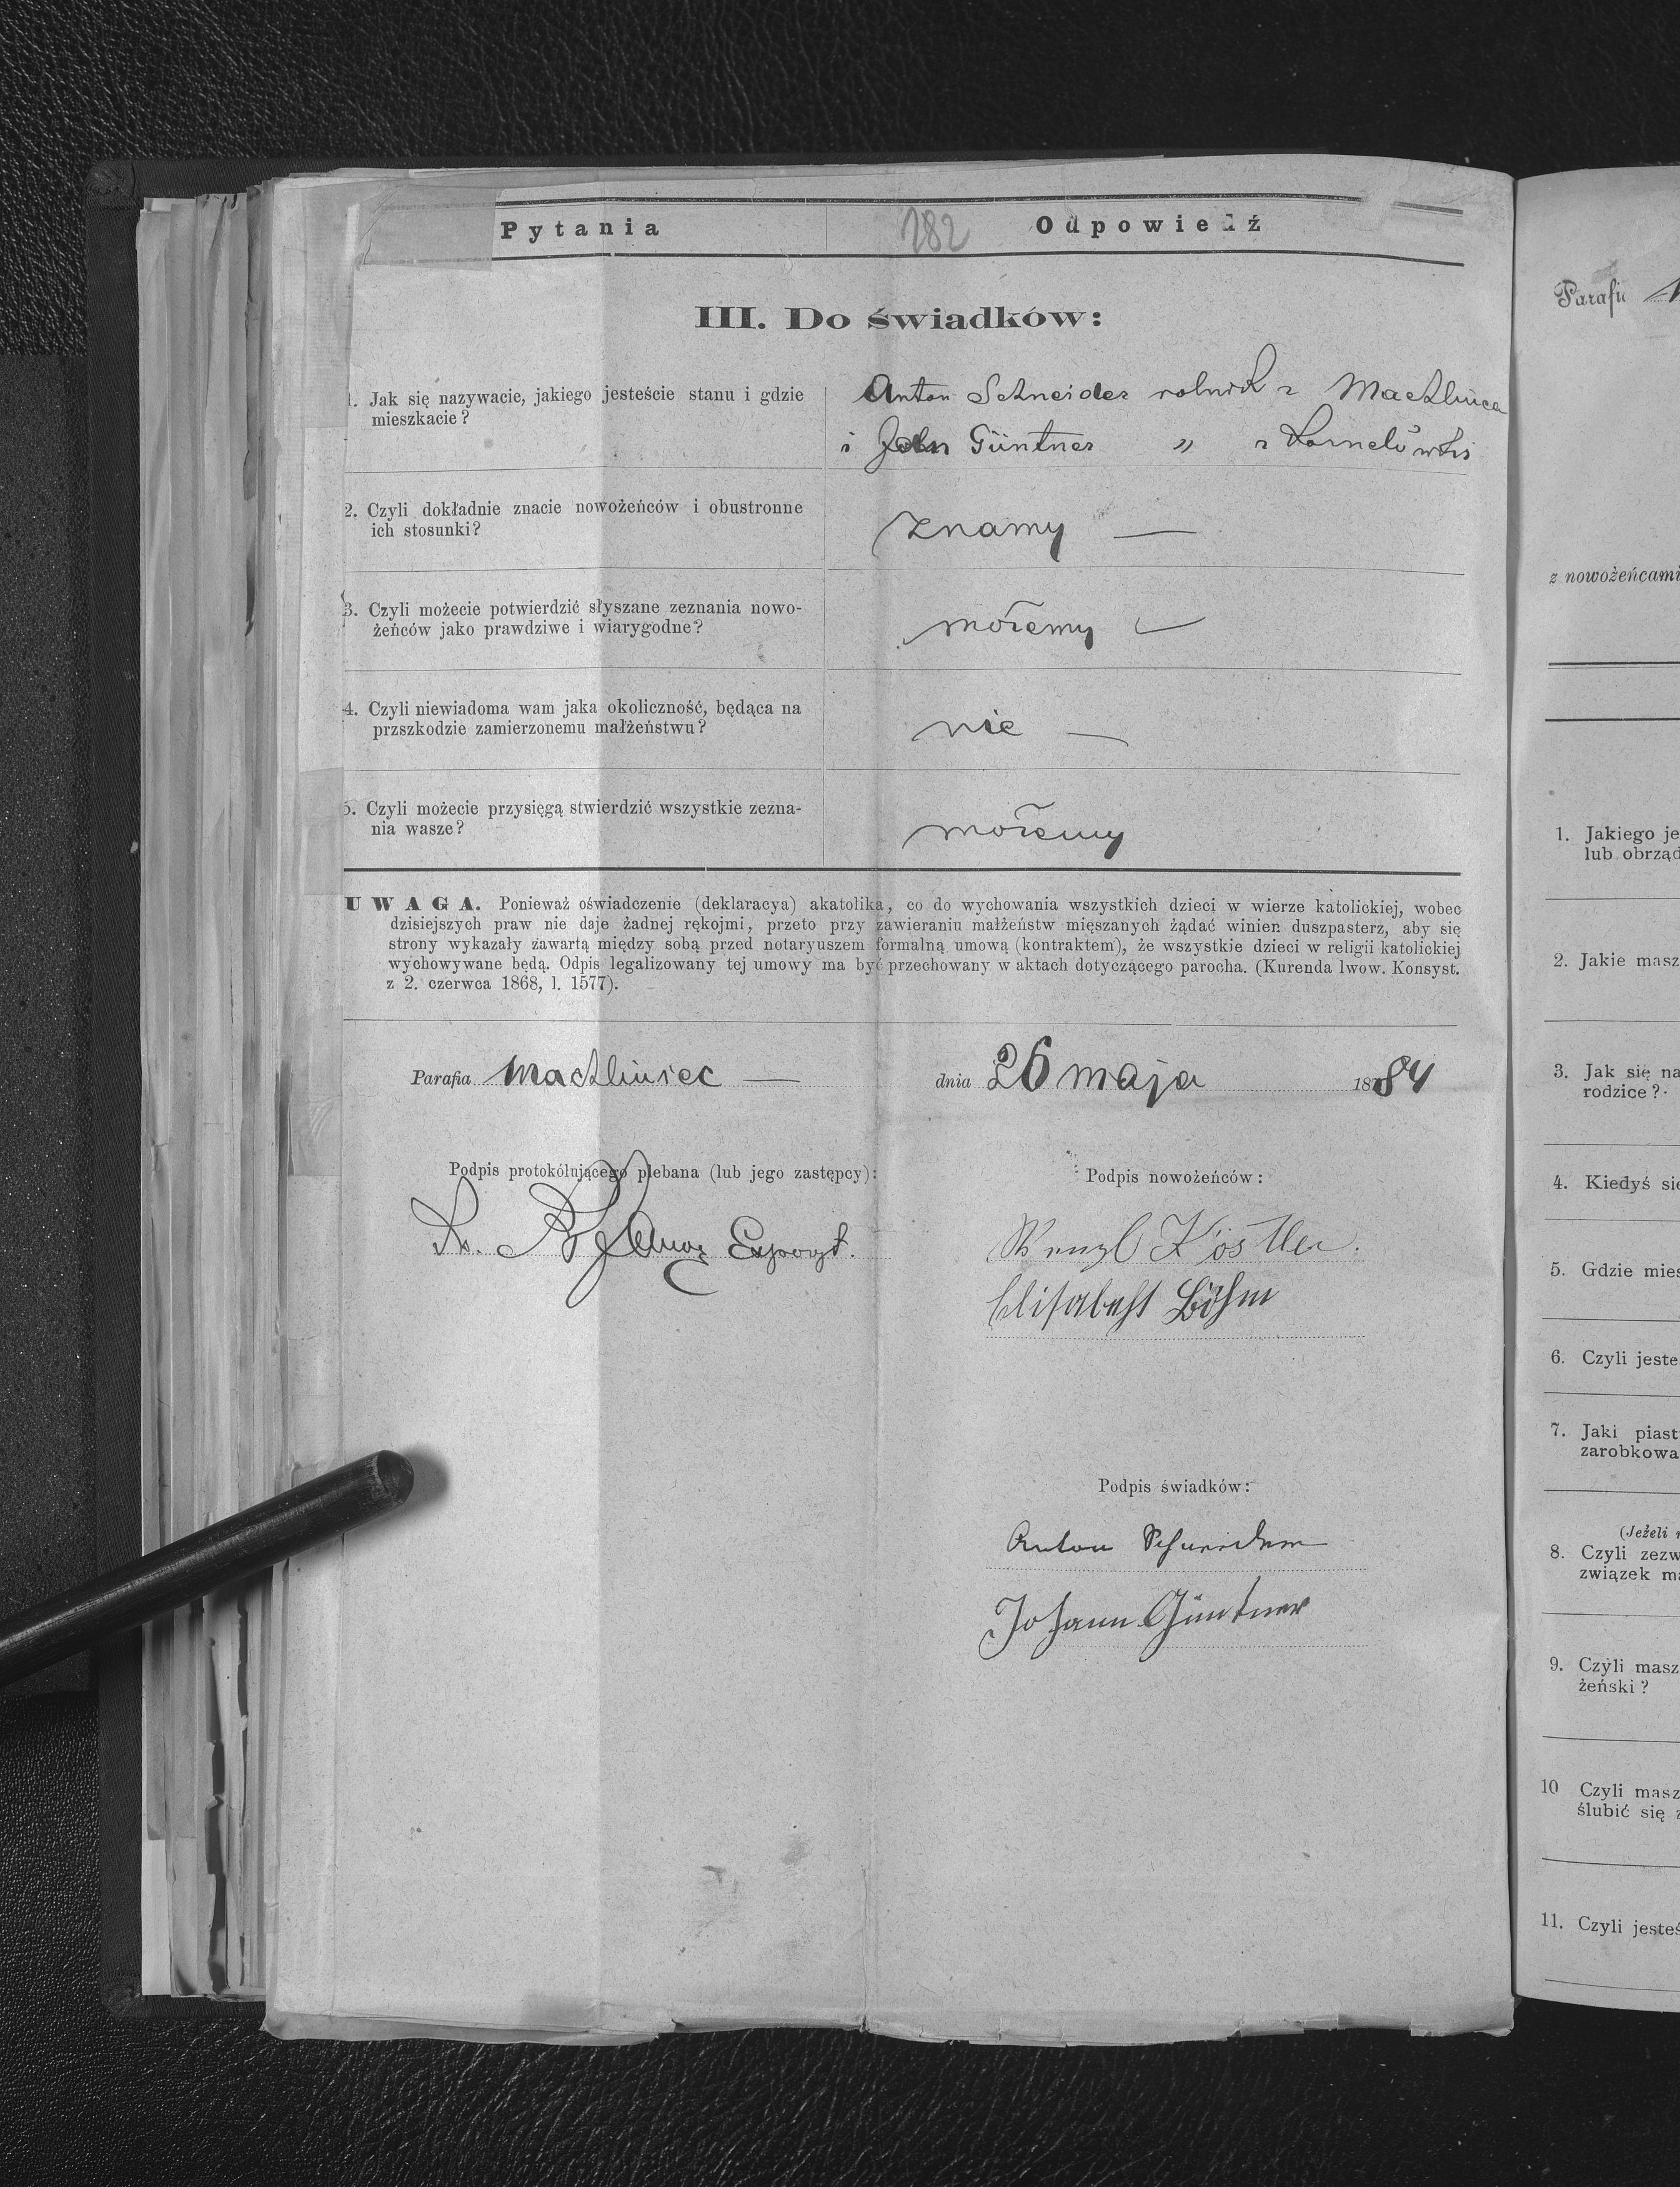 Pytania 282 Odpowiedź
III. Do świadków:
1. Jak się nazywacie, jakiego jesteście stanu i gdzie
mieszkacie?
Anton Schneider rolnik z Machlińca
i Güntner " z Kornelówki
2. Czyli dokładnie znacie nowożeńców i obustronne
ich stosunki?
znamy —
3. Czyli możecie potwierdzić słyszane zeznania nowo-
żeńców jako prawdziwe i wiarygodne?
możemy —
4. Czyli niewiadoma wam jaka okoliczność, będąca na
przszkodzie zamierzonemu małżeństwu?
nie —
5. Czyli możecie przysięgą stwierdzić wszystkie zezna-
nia wasze?
możemy
UWAGA. Ponieważ oświadczenie (deklaracya) akatolika, co do wychowania wszystkich dzieci w wierze katolickiej, wobec
dzisiejszych praw nie daje żadnej rękojmi, przeto przy zawieraniu małżeństw mięszanych żądać winien duszpasterz, aby się
strony wykazały zawartą między sobą przed notaryuszem formalną umową (kontraktem), że wszystkie dzieci w religii katolickiej
wychowywane będą. Odpis legalizowany tej umowy ma być przechowany w aktach dotyczącego parocha. (Kurenda lwow. Konsyst.
z 2. czerwca 1868, l. 1577).
Parafia Machliniec — dnia 26 maja 1884
Podpis protokółującego plebana (lub jego zastępcy):
X. Expozyt.
Podpis nowożeńców:
Wenzl Köstler.
Elisabeht Böhm
Podpis świadków:
Anton Schneider
Johann Güntner
Parafii
z nowożeńcami
1. Jakiego je
lub obrząd
2. Jakie masz
3. Jak się na
rodzice?
4. Kiedyś się
5. Gdzie mies
6. Czyli jeste
7. Jaki piast
zarobkowa
(Jeżeli
8. Czyli zezw
związek ma
9. Czyli masz
żeński?
10 Czyli masz
ślubić się z
11. Czyli jesteś